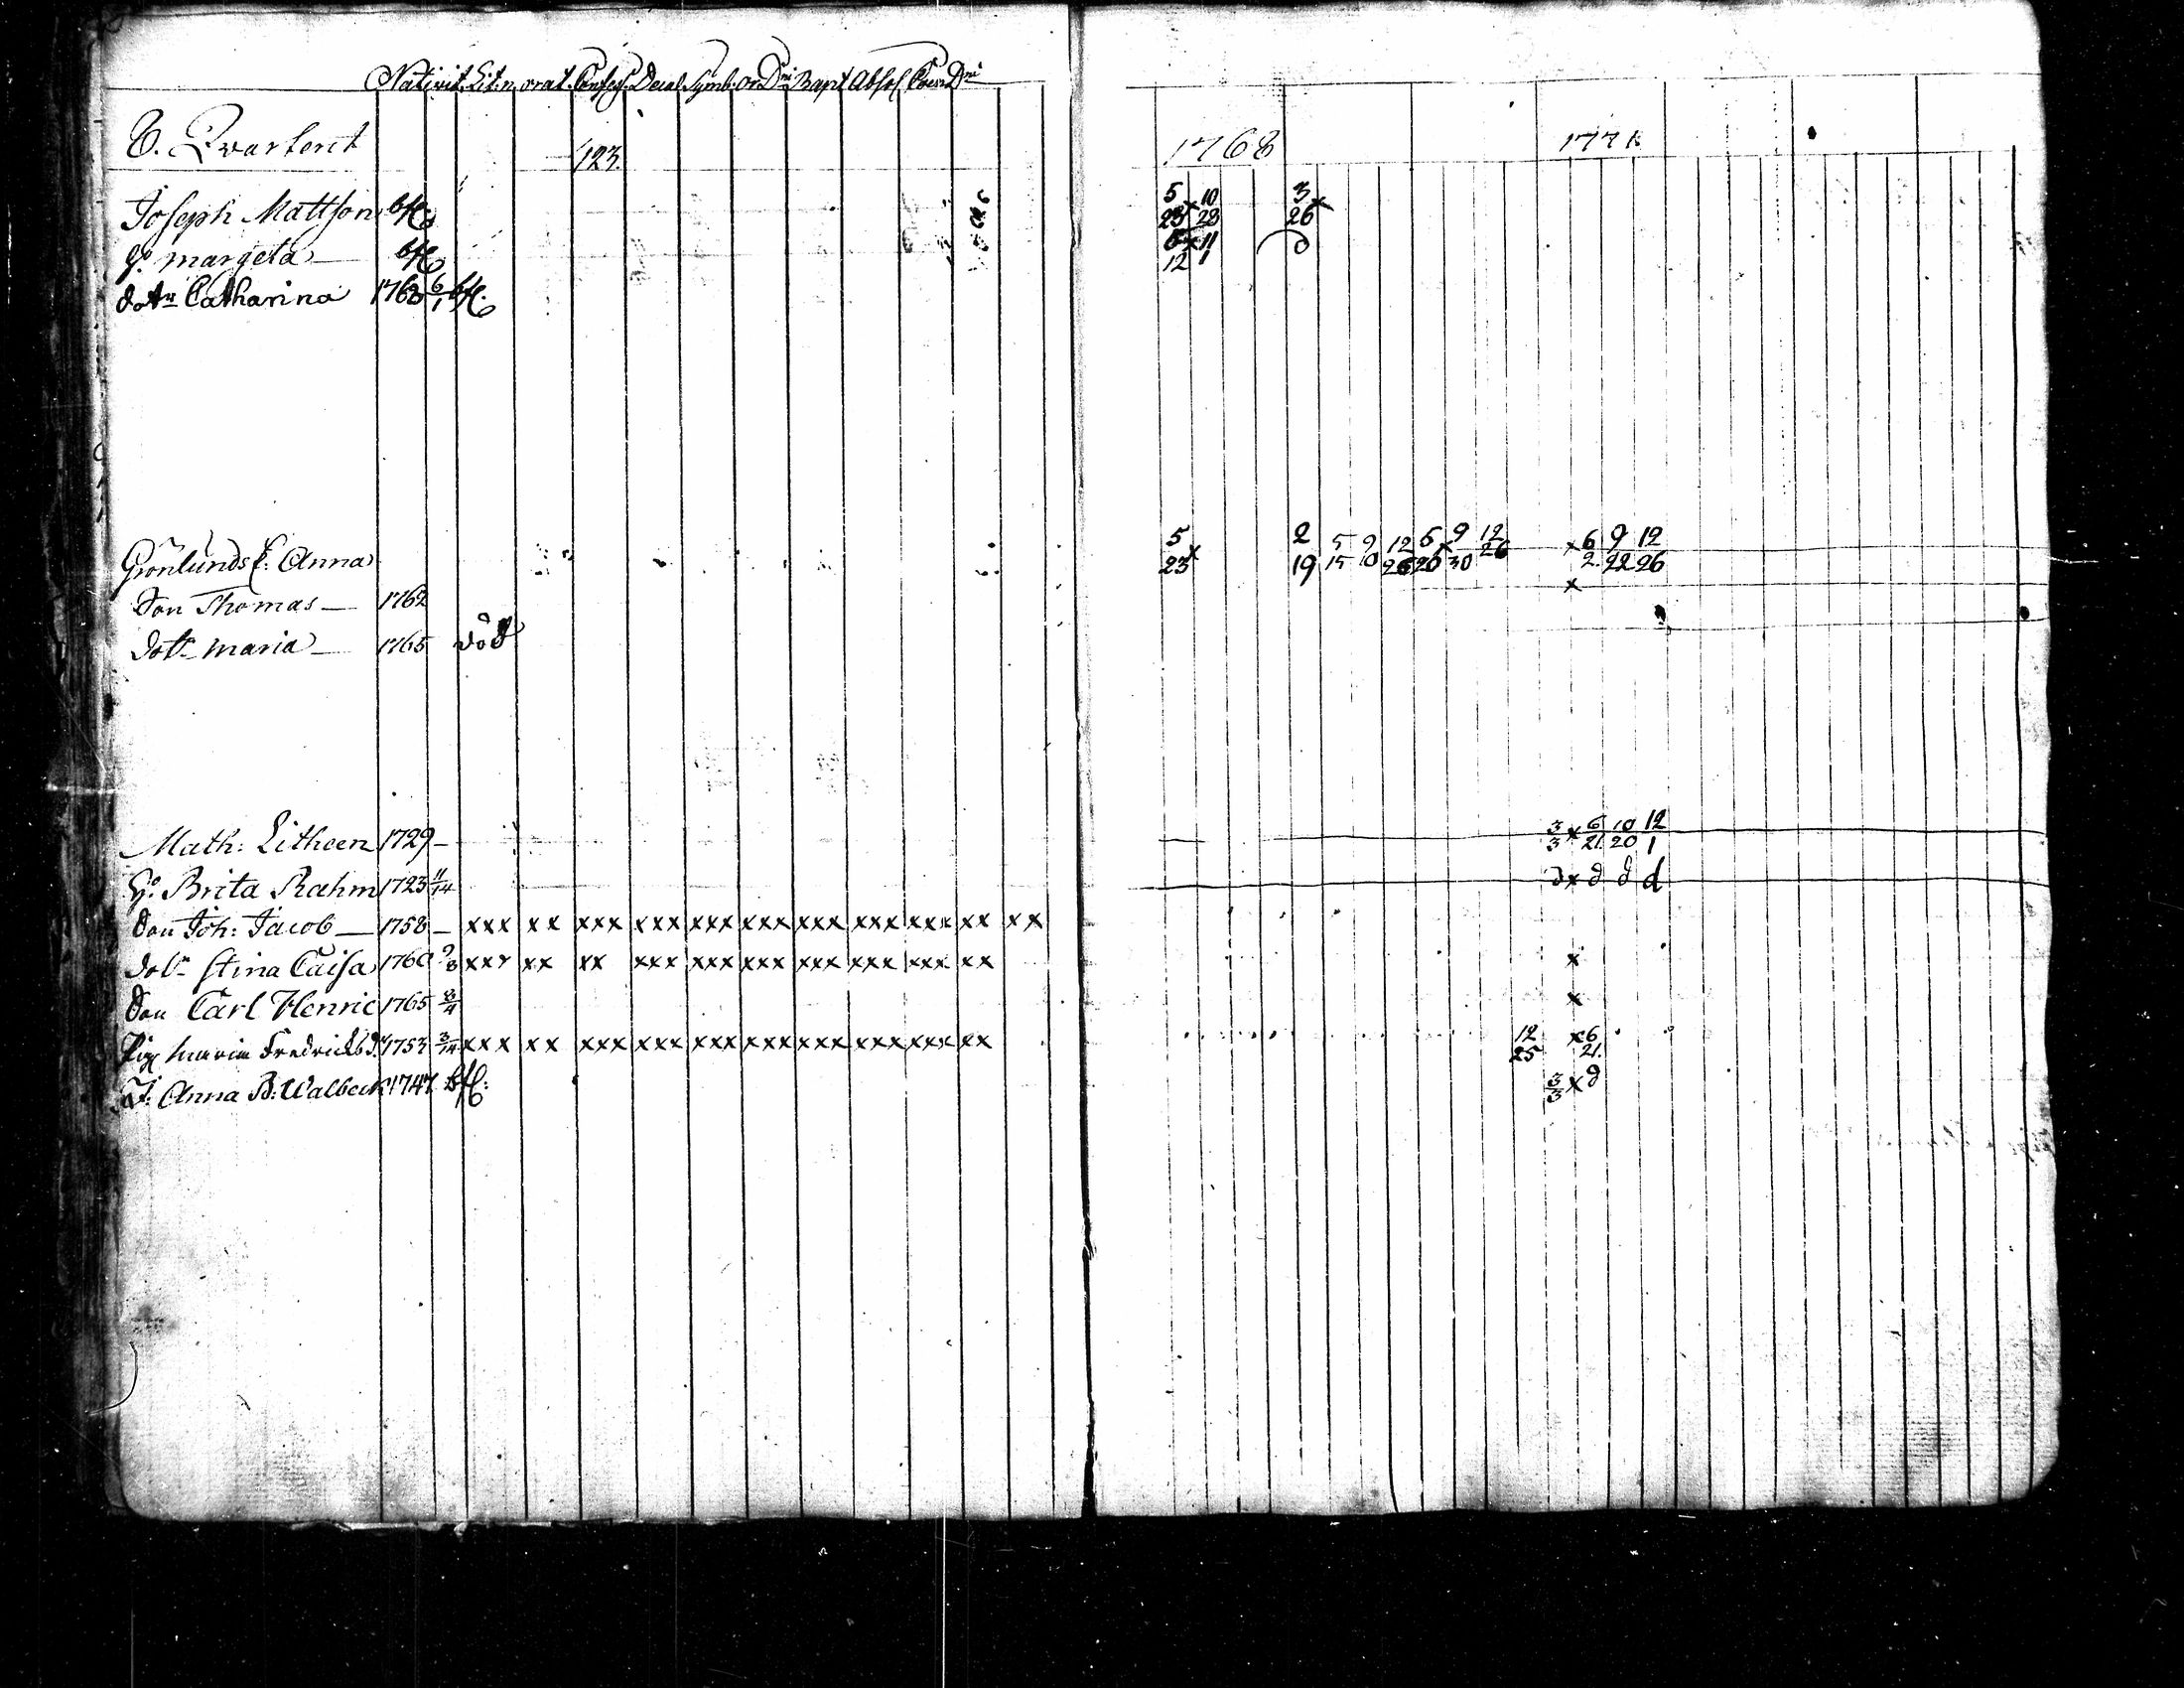 Nativit. Lit: n. orat. Confess. Decal. Symb. Or Dni Bapt Absol Coen Dni
6. Qvarteret 123. 1768 1771
Joseph Mattson 5 x 10 3 x
23 28 26
H:o margeta 5 x 11 d
12 1
dott:r Catharina 1763 6/1
Grönlunds E: Anna 5 x 2 5 9 12 6 x 9 12 x 6 9 12
23 19 15 0 26 20 30 26 2 22 26
Son Thomas 1762 x
dott:r maria 1765 död
Math: Litheen 1729 – 3/3 x 6/21 10/20 12/1
H:o Brita Rahm 1723 11/14 d x d d d
Son Joh: Jacob 1758 – xxx xx xxx xxx xxx xxx xxx xxx xxx xx xx
dott:r Stina Caisa 1760 9/8 xxx xx xx xxx xxx xxx xxx xxx xxx xx x
Son Carl Henric 1765 3/4 x
Pig maria Fredricksd:r 1753 3/14 xxx xx xxx xxx xxx xxx xxx xxx xxx xx 12/25 x 6/21
J: Anna B: Walbeck 1747 3/3 x d